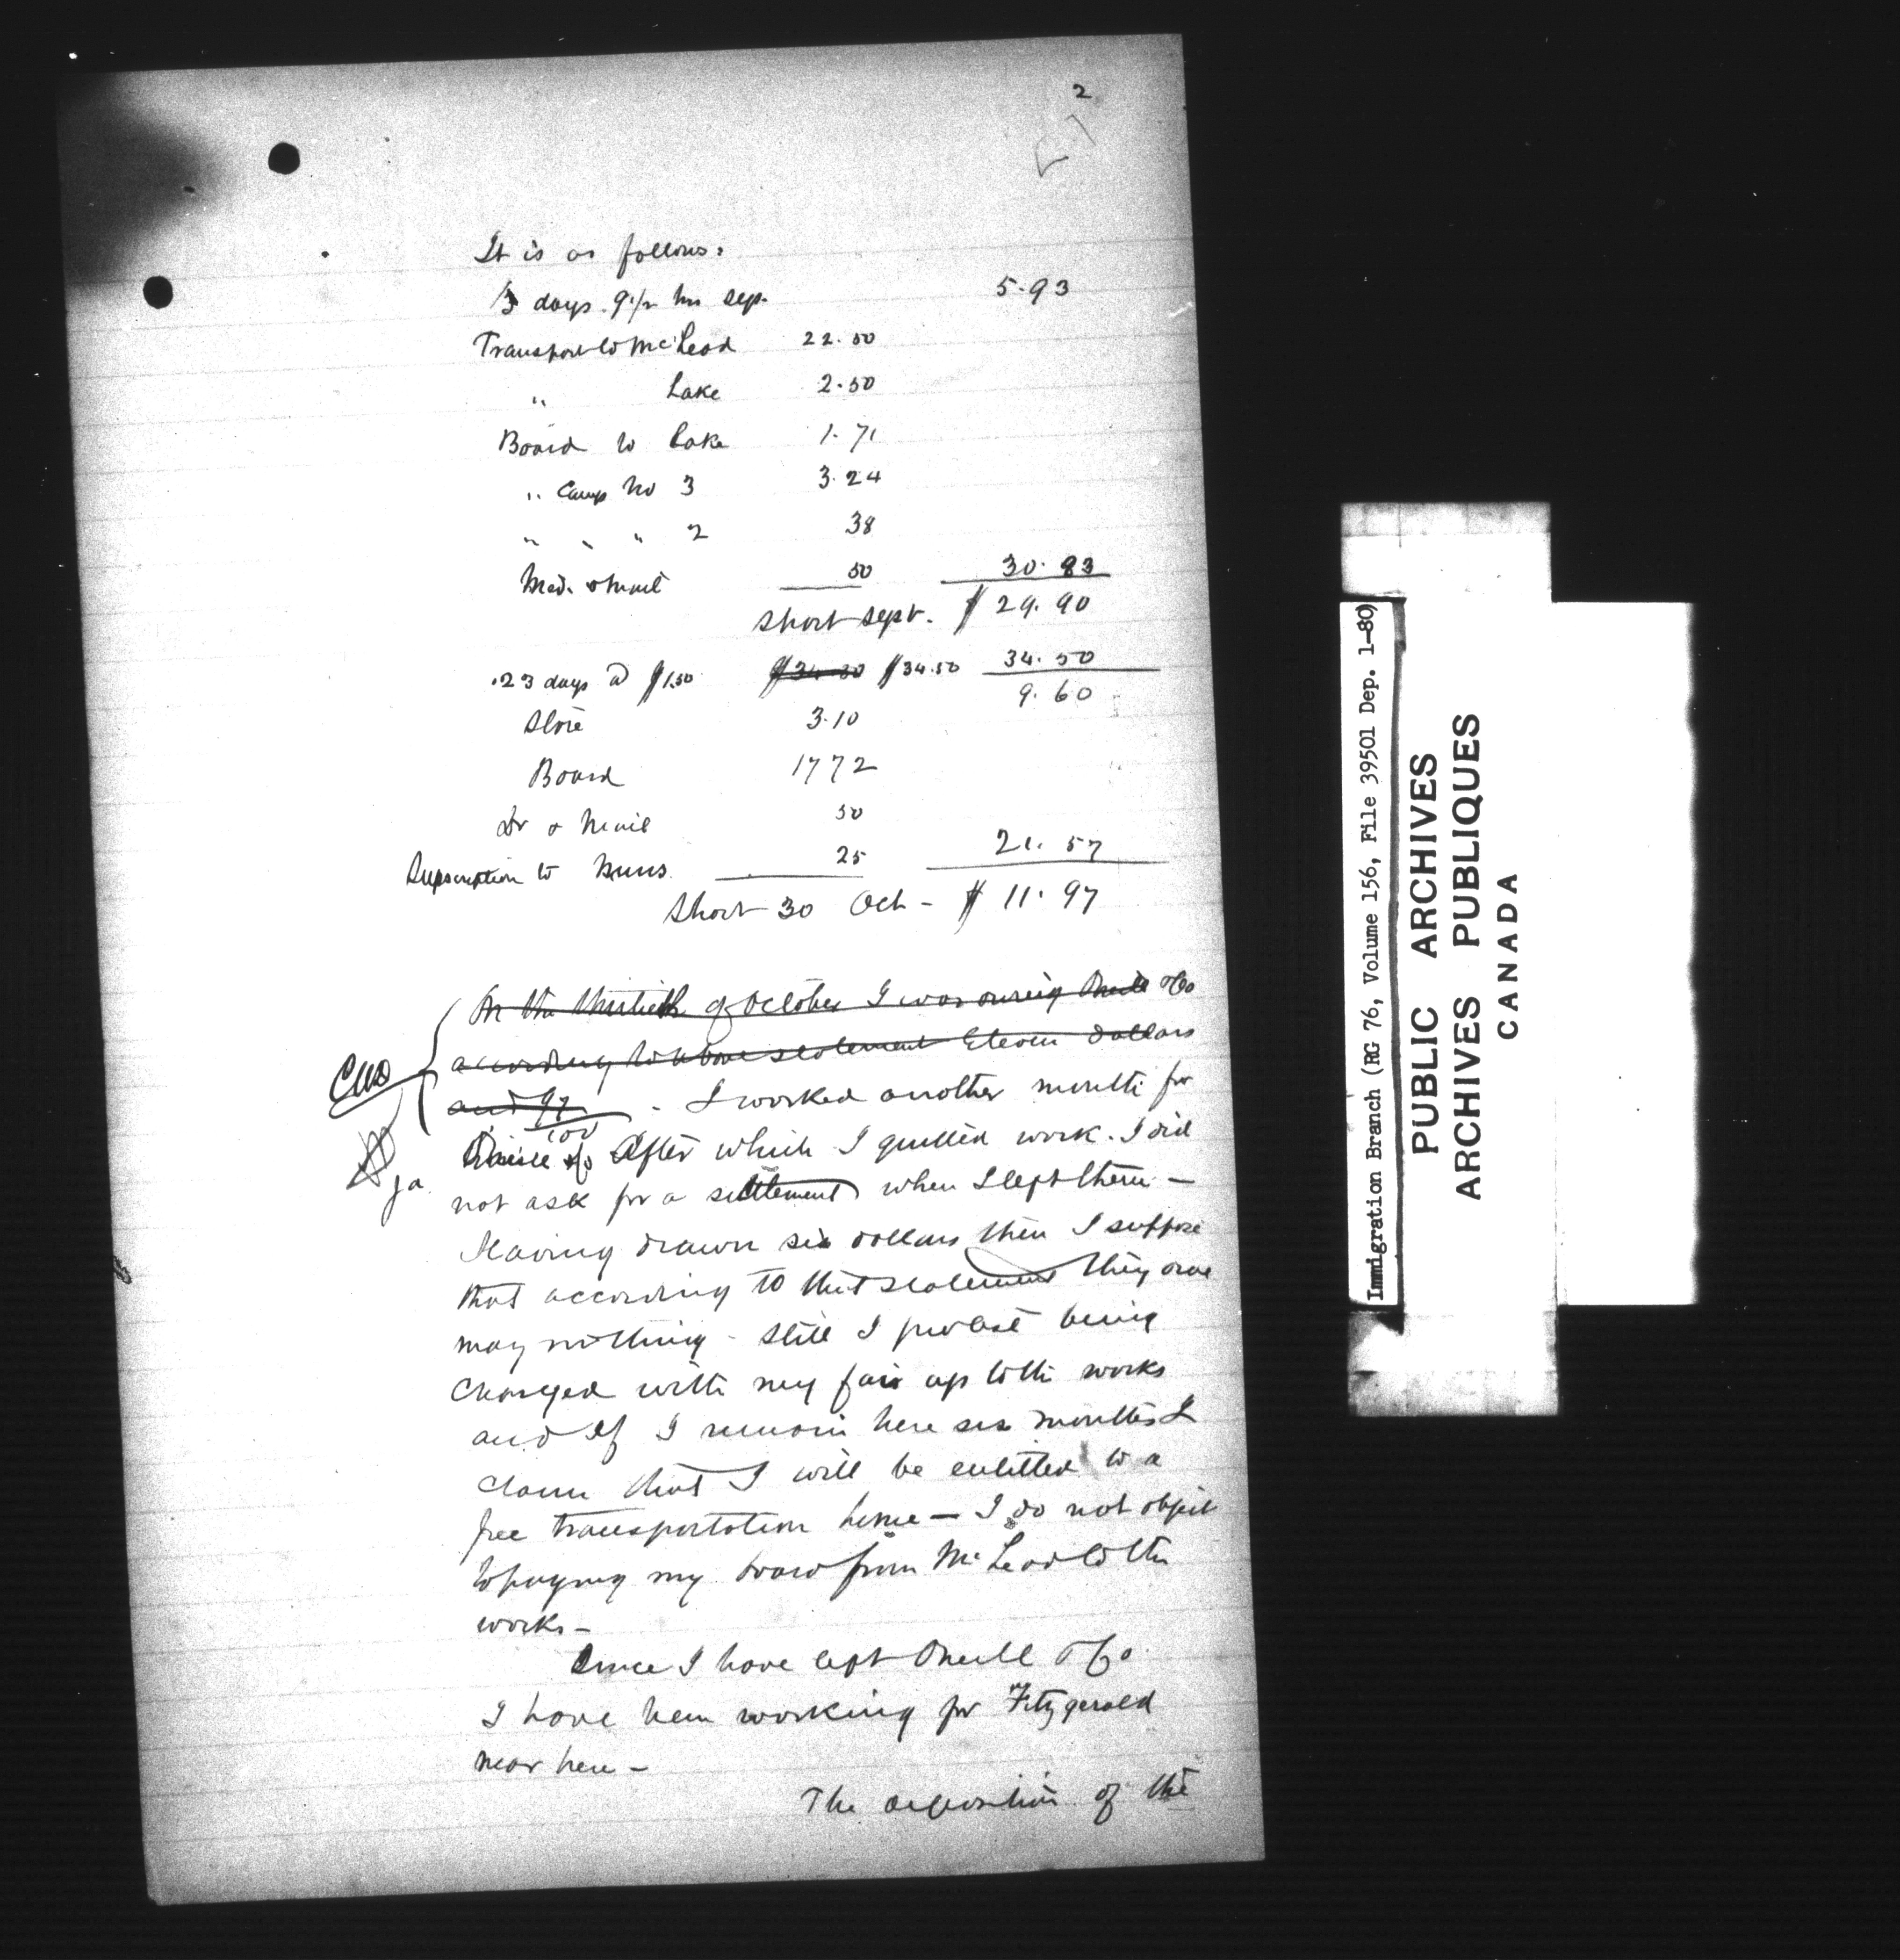 2
It is as follows:
3 days. 9 1/2 hrs Sep. 5.93
Transport to McLeod 22.50
" Lake 2.50
Board to Lake 1.71
" Camp No 3 3.24
" " " 2 38
Med. & Mail 50 30.83
Short Sept. $ 29.90
.23 days @ $1.50 $34.50 34.50
9.60
Store 3.10
Board 1772
Dr & Mail 50
Supscription to Nuns 25 21.57
Short 30 Oct - $ 11.97
On the thirtieth of October I was owing Oneill & Co
according to above statement Eleven Dollars
and 97/100. I worked another month for
Oneill & Co After which I quitted work. I did
not ask for a settlement when I left them —
Having drawn six dollars then I suppose
that according to that statement they owe
may nothing - Still I protest being
charged with my fair up to the works
and If I remain here six months I
claim that I will be entitled to a
free transportation home — I do not object
to paying my board from McLeod to the
works —
Since I have left Oneill & Co.
I have been working for Fitzgerald
near here —
The deposition of the
Immigration Branch (RG 76, Volume 156, File 39501 Dep. 1-80)
PUBLIC ARCHIVES
ARCHIVES PUBLIQUES
CANADA